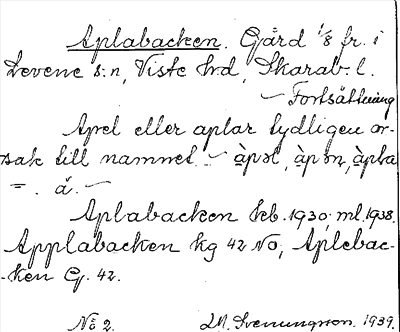 Aplabacken. Gård 1/8 fr. i
Levene s:n, Viste hrd, Skarab. l.
— Fortsättning
Apel eller aplar tydligen or-
sak till namnet. — àpəl, àpən, àpla
=. å. —
Aplabacken keb. 1930, ml. 1938.
Applabacken kg 42 No, Aplebac-
-ken G. 42.
No 2. M. Svenungson. 1939.